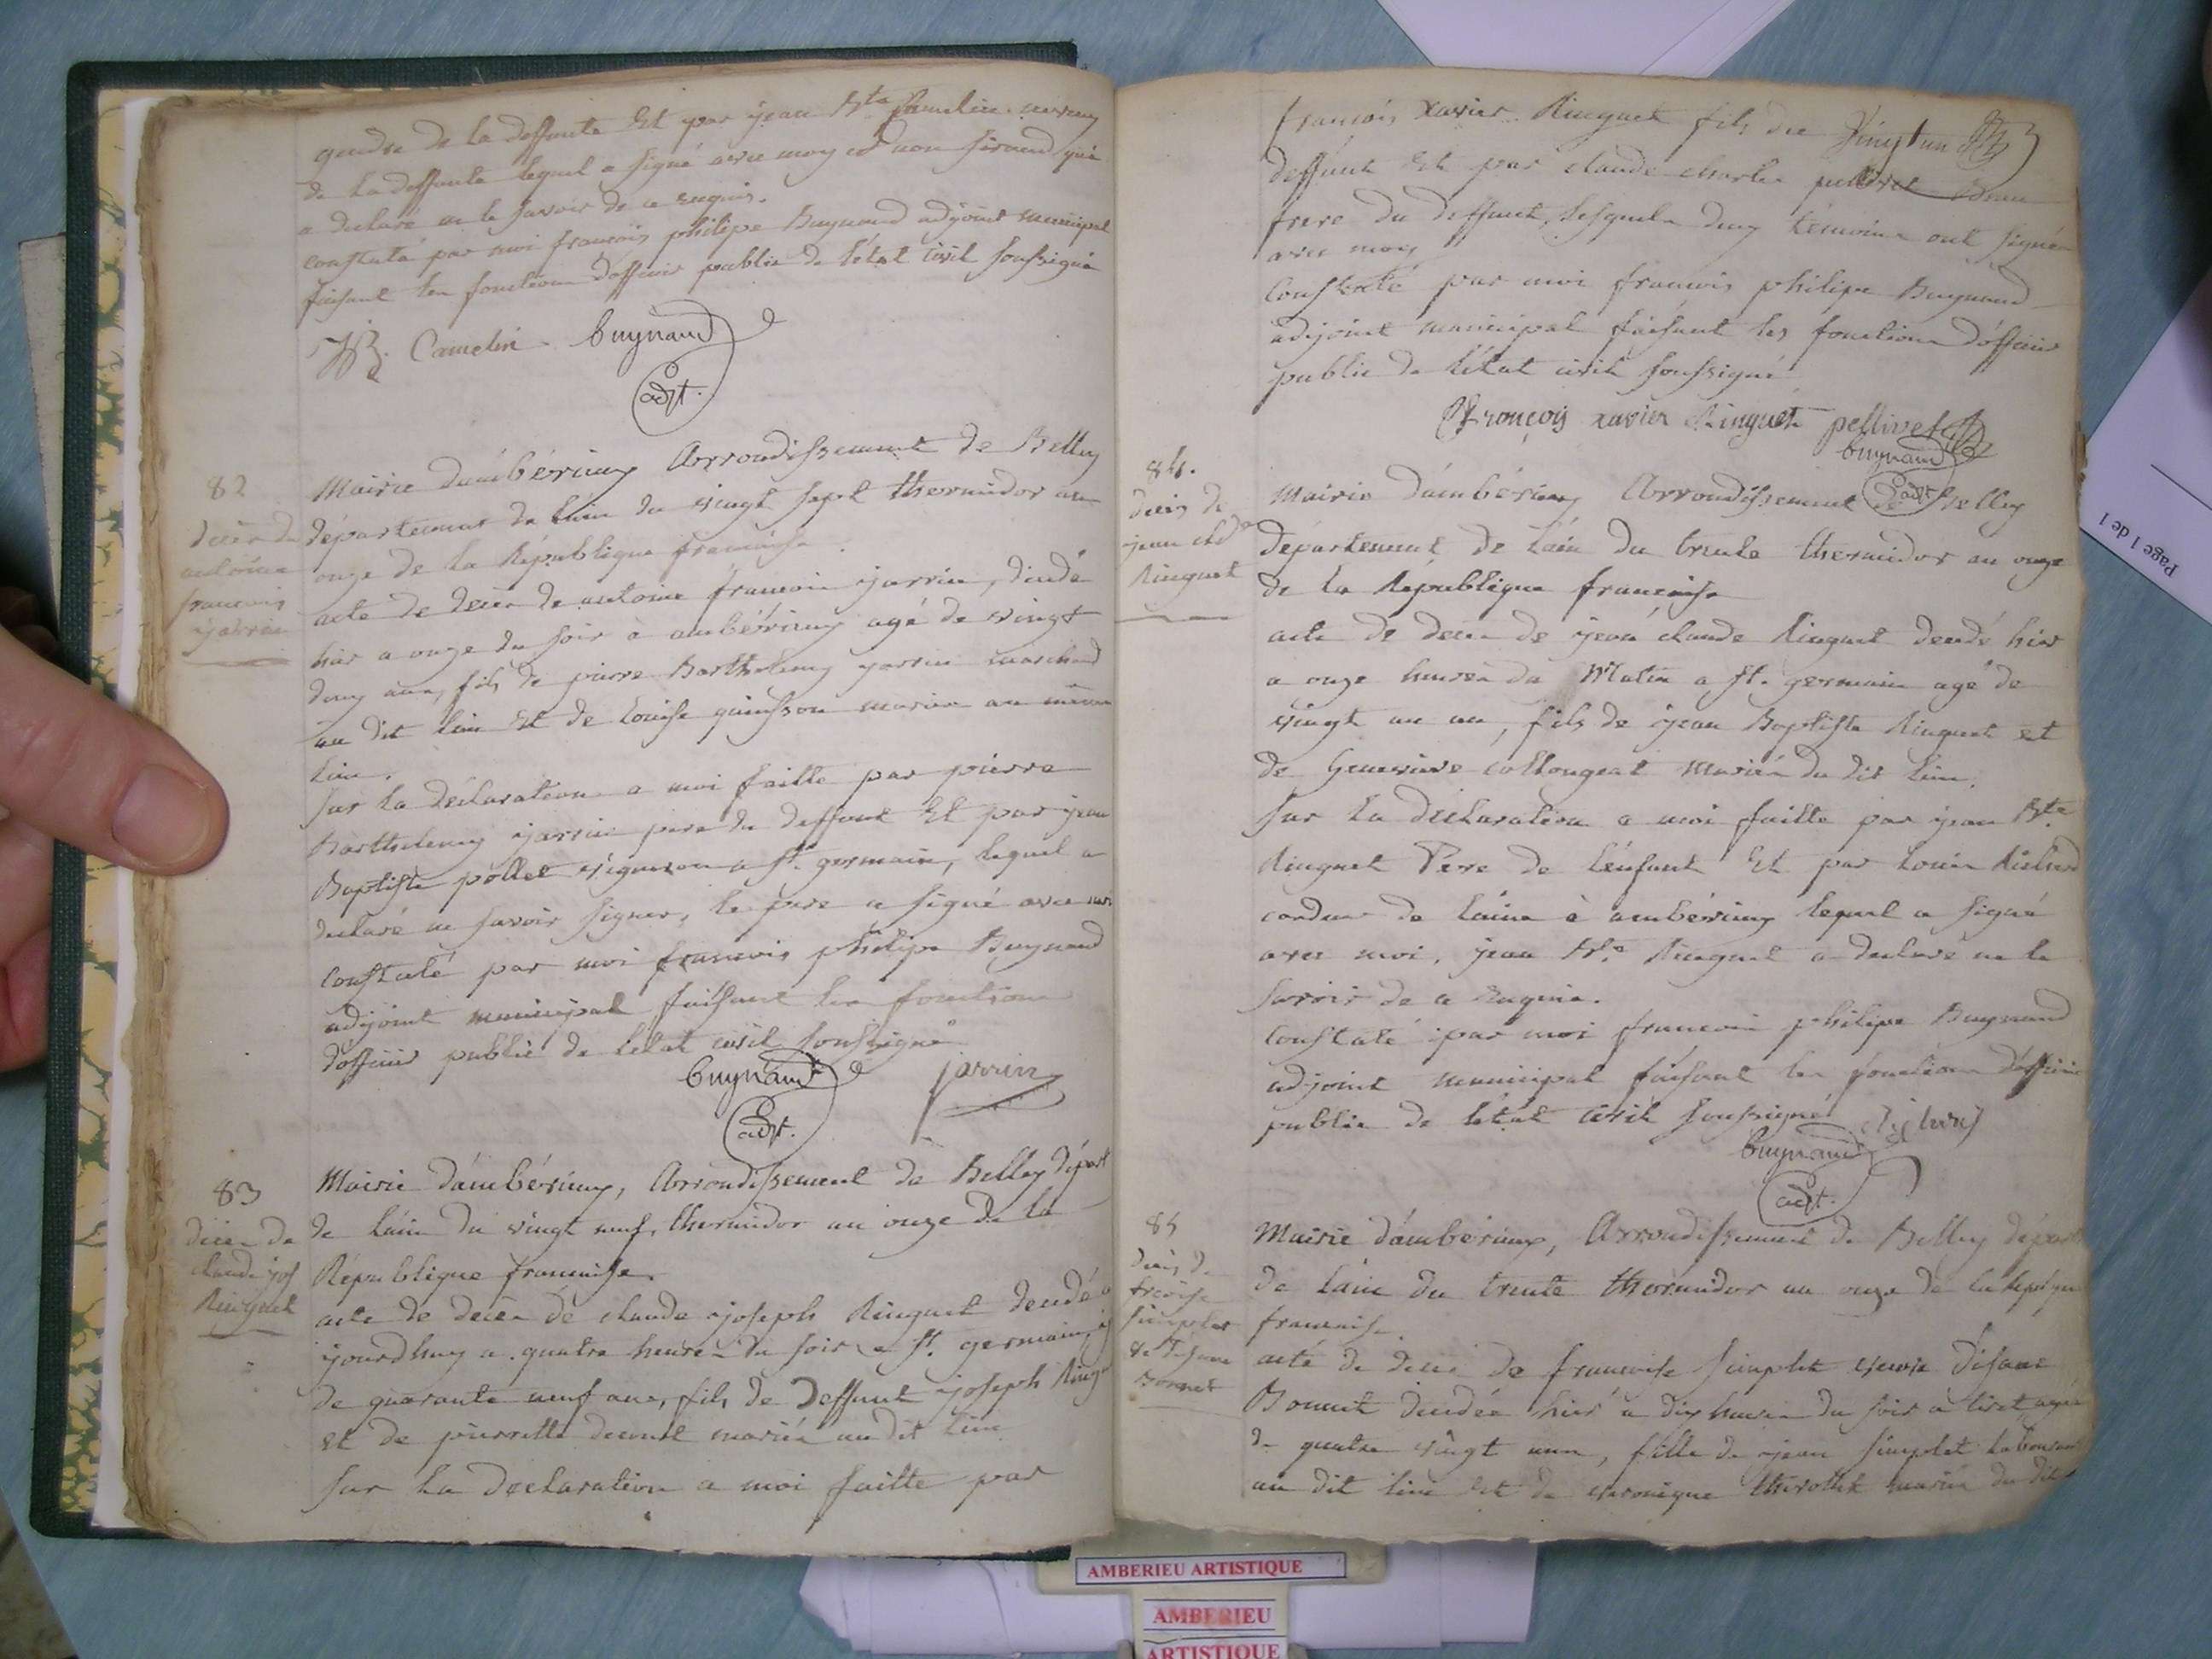 gendre de la deffunte Et par jean Bte Camelin neveu
de la deffunte lequel a signé avec moy et non Giraud qui
a declaré ne le savoir de ce enquis.
constaté par moi françois philipe Buynand adjoint municipal
faisant les fonctions d'officier public de l'état civil soussigné
JB. Camelin buynand
adjt.
82
décès de
antoine
francois
jarrin
Mairie d'ambérieux Arrondissement de Belley
département de l'ain du vingt sept thermidor an
onze de la République francaise.
acte de decès de antoine francois jarrin, décédé
hier a onze du soir à ambérieux agé de vingt
deux ans, fils de pierre Barthelemy jarrin marchand
au dit lieu Et de Louise mariés au même
lieu.
Sur la déclaration a moi faitte par pierre
Barthelemy jarrin pere du deffunt Et par jean
Baptiste pollet vigneron a St. germain, lequel a
declaré ne savoir signer, le pere a signé avec moi
Constaté par moi francois philipe Buynand
adjoint municipal faisant les fonctions
d'officier public de l'etat civil soussigné
buynand jarrin
adjt.
83
décès de
claude jos
Ringuet
Mairie d'ambérieux, Arrondissement de Belley dépar
de l'ain du vingt neuf thermidor an onze de la
République francaise.
acte de decès de claude joseph Ringuet decedé
jourdhuy a quatre heures du soir a St. germain,
de quarante neuf ans, fils de Deffunt joseph Ringu
et de pierrette mariés au dit lieu
Sur la declaration a moi faitte par
françois xavier Ringuet fils du
deffunt Et par claude charles pellivet
frere du deffunt, lesquels deux témoins ont signés
avec moy
Constaté par moi francois philipe Buynand
adjoint municipal faisant les fonctions d'officier
public de l'état civil soussigné
françois xavier Ringuet pellivet
buynand
adjt
84.
décès de
jean cld
Ringuet
Mairie d'ambérieux Arrondissement de Belley
Département de l'ain du trente thermidor an onze
de la République francaise
acte de decès de jean claude Ringuet decedé hier
a onze heures du Matin a St. germain agé de
vingt un an, fils de jean Baptiste Ringuet et
de Genevieve collongeat mariés du dit lieu.
Sur la déclaration a moi faitte par jean Bte
Ringuet Pere de l'enfant Et par Louis Richerd
cardeur de laine à ambérieux lequel a signé
avec moi, jean Bte Ringuet a declaré ne le
savoir de ce enquis.
Constaté par moi francois philipe Buynand
adjoint municipal faisant les fonctions d'officier
public de l'état civil soussigné
buynand
adjt.
85
décès de
simplet
Bonnet
Mairie d'ambérieux, Arrondissement de Belley dépar
de l'ain du trente thermidor an onze de la
francaise.
acte de decès de francoise simplet veuve
Bonnet décédée hier a dix heures du soir a tiret agée
de quatre vingt ans, fille de jean simplet laboureur
au dit lieu Et de veronique mariés du dit
Page 1 de 1
AMBERIEU ARTISTIQUE
AMBERIEU
ARTISTIQUE